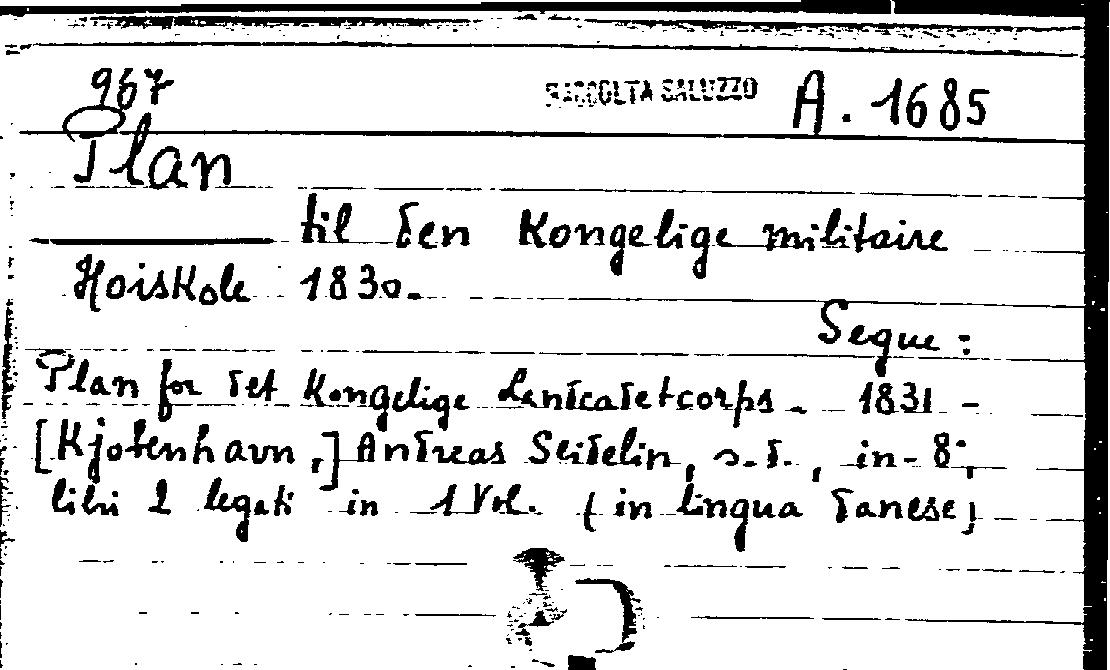 967 RACCOLTA SALUZZO A. 1685
Plan
til den Kongelige militaire
Hoiskole 1830.
Segue:
Plan for det Kongelige Landcadetcorps. 1831 -
[Kjobenhavn,] Andreas Seidelin, s.d., in-8°,
libri 2 legati in 1 Vol. (in lingua danese)